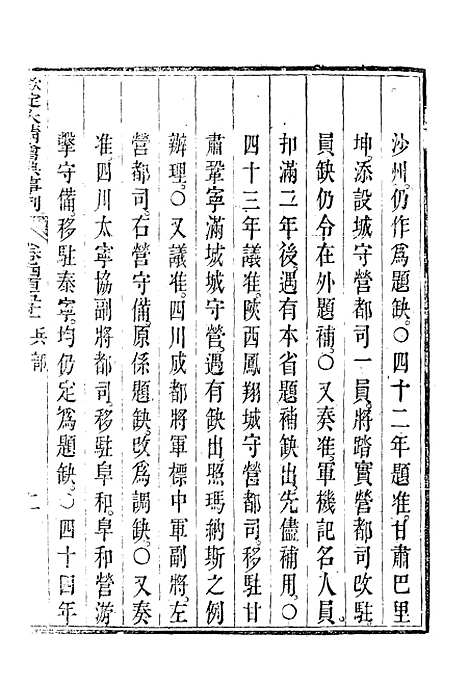 沙州。仍作爲題缺。○四十二年題准。甘肅巴里
坤。添設城守營都司一員。將踏實營都司改駐。
員缺仍令在外題補。○又奏准。軍機記名人員。
扣滿二年後。遇有本省題補缺出。先儘補用。○
四十三年議准。陝西鳳翔城守營都司。移駐甘
肅鞏寧滿城城守營。遇有缺出。照瑪納斯之例
辦理。○又議准。四川成都將軍標中軍副將。左
營都司。右營守備。原係題缺。改爲調缺。○又奏
准。四川太寧協副將都司。移駐阜和。阜和營游
擊守備。移駐泰寧。均仍定爲題缺。○四十四年
欽定大清會典事例 兵部